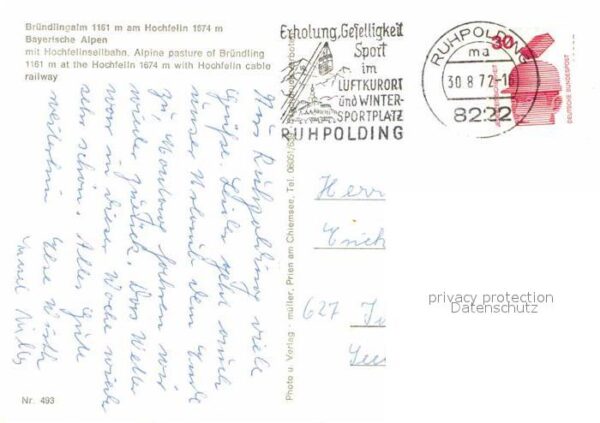 Bründlingalm 1161 m am Hochfelln 1574 m
Bayerische Alpen
mit Hochfellnseilbahn. Alpine pasture of Bründling
1161 m at the Hochfelln 1674 m with Hochfelln cable
railway
Aus Ruhpolding viele
Grüße. Leider geht auch
unser Urlaub dem Ende
zu, Montag fahren wir
wieder zurück. Das Wetter
war in dieser Woche wieder
sehr schön. Alles Gute
weiterhin
Nr. 493
Photo u. Verlag · müller, Prien am Chiemsee, Tel. 08051/
Erholung, Geselligkeit
Sport
im
LUFTKURORT
und WINTER-
SPORTPLATZ
RUHPOLDING
RUHPOLDING
ma
30.8.72-16
8222
30
DEUTSCHE BUNDESPOST
Herr
Erich
627
privacy protection
Datenschutz